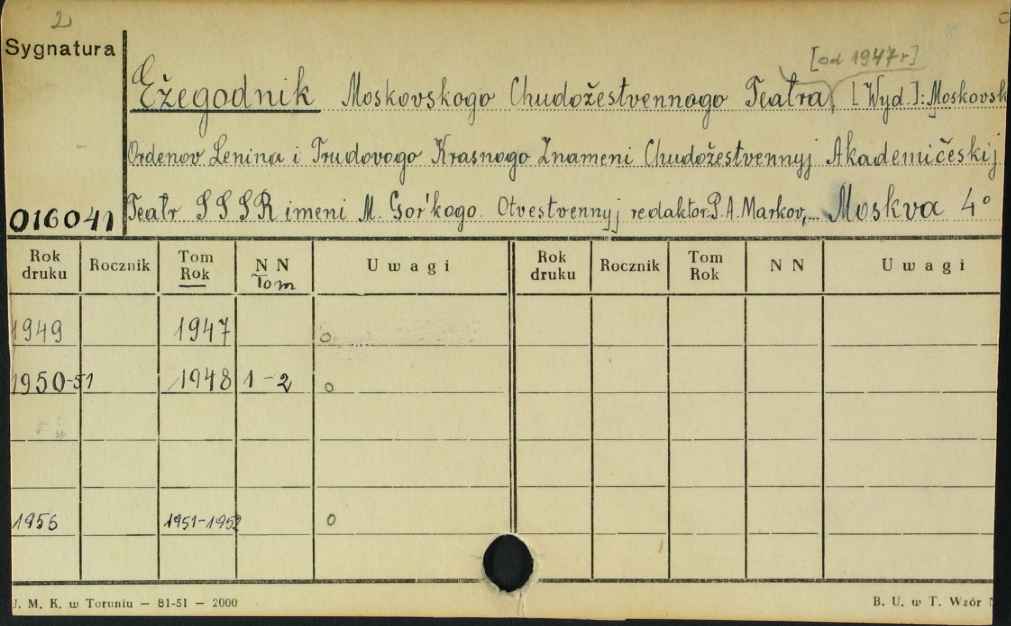 2
Sygnatura
[od 1947 r]
Ežegodnik Moskovskogo Chudožestvennogo Teatra, [Wyd.]: Moskovsk
Ordenov Lenina i Trudovogo Krasnogo Znameni Chudožestvennyj Akademičeskij
016041 Teatr SSSR imeni M. Gor'kogo. Otvestvennyj redaktor P. A. Markov,... Moskva 4°
Rok druku Rocznik Tom Rok N N Tom Uwagi Rok druku Rocznik Tom Rok N N Uwagi
1949 1947 o
1950-51 1948 1-2 o
1956 1951-1952 o
U. M. K. w Toruniu — 81-51 — 2000 B. U. w T. Wzór